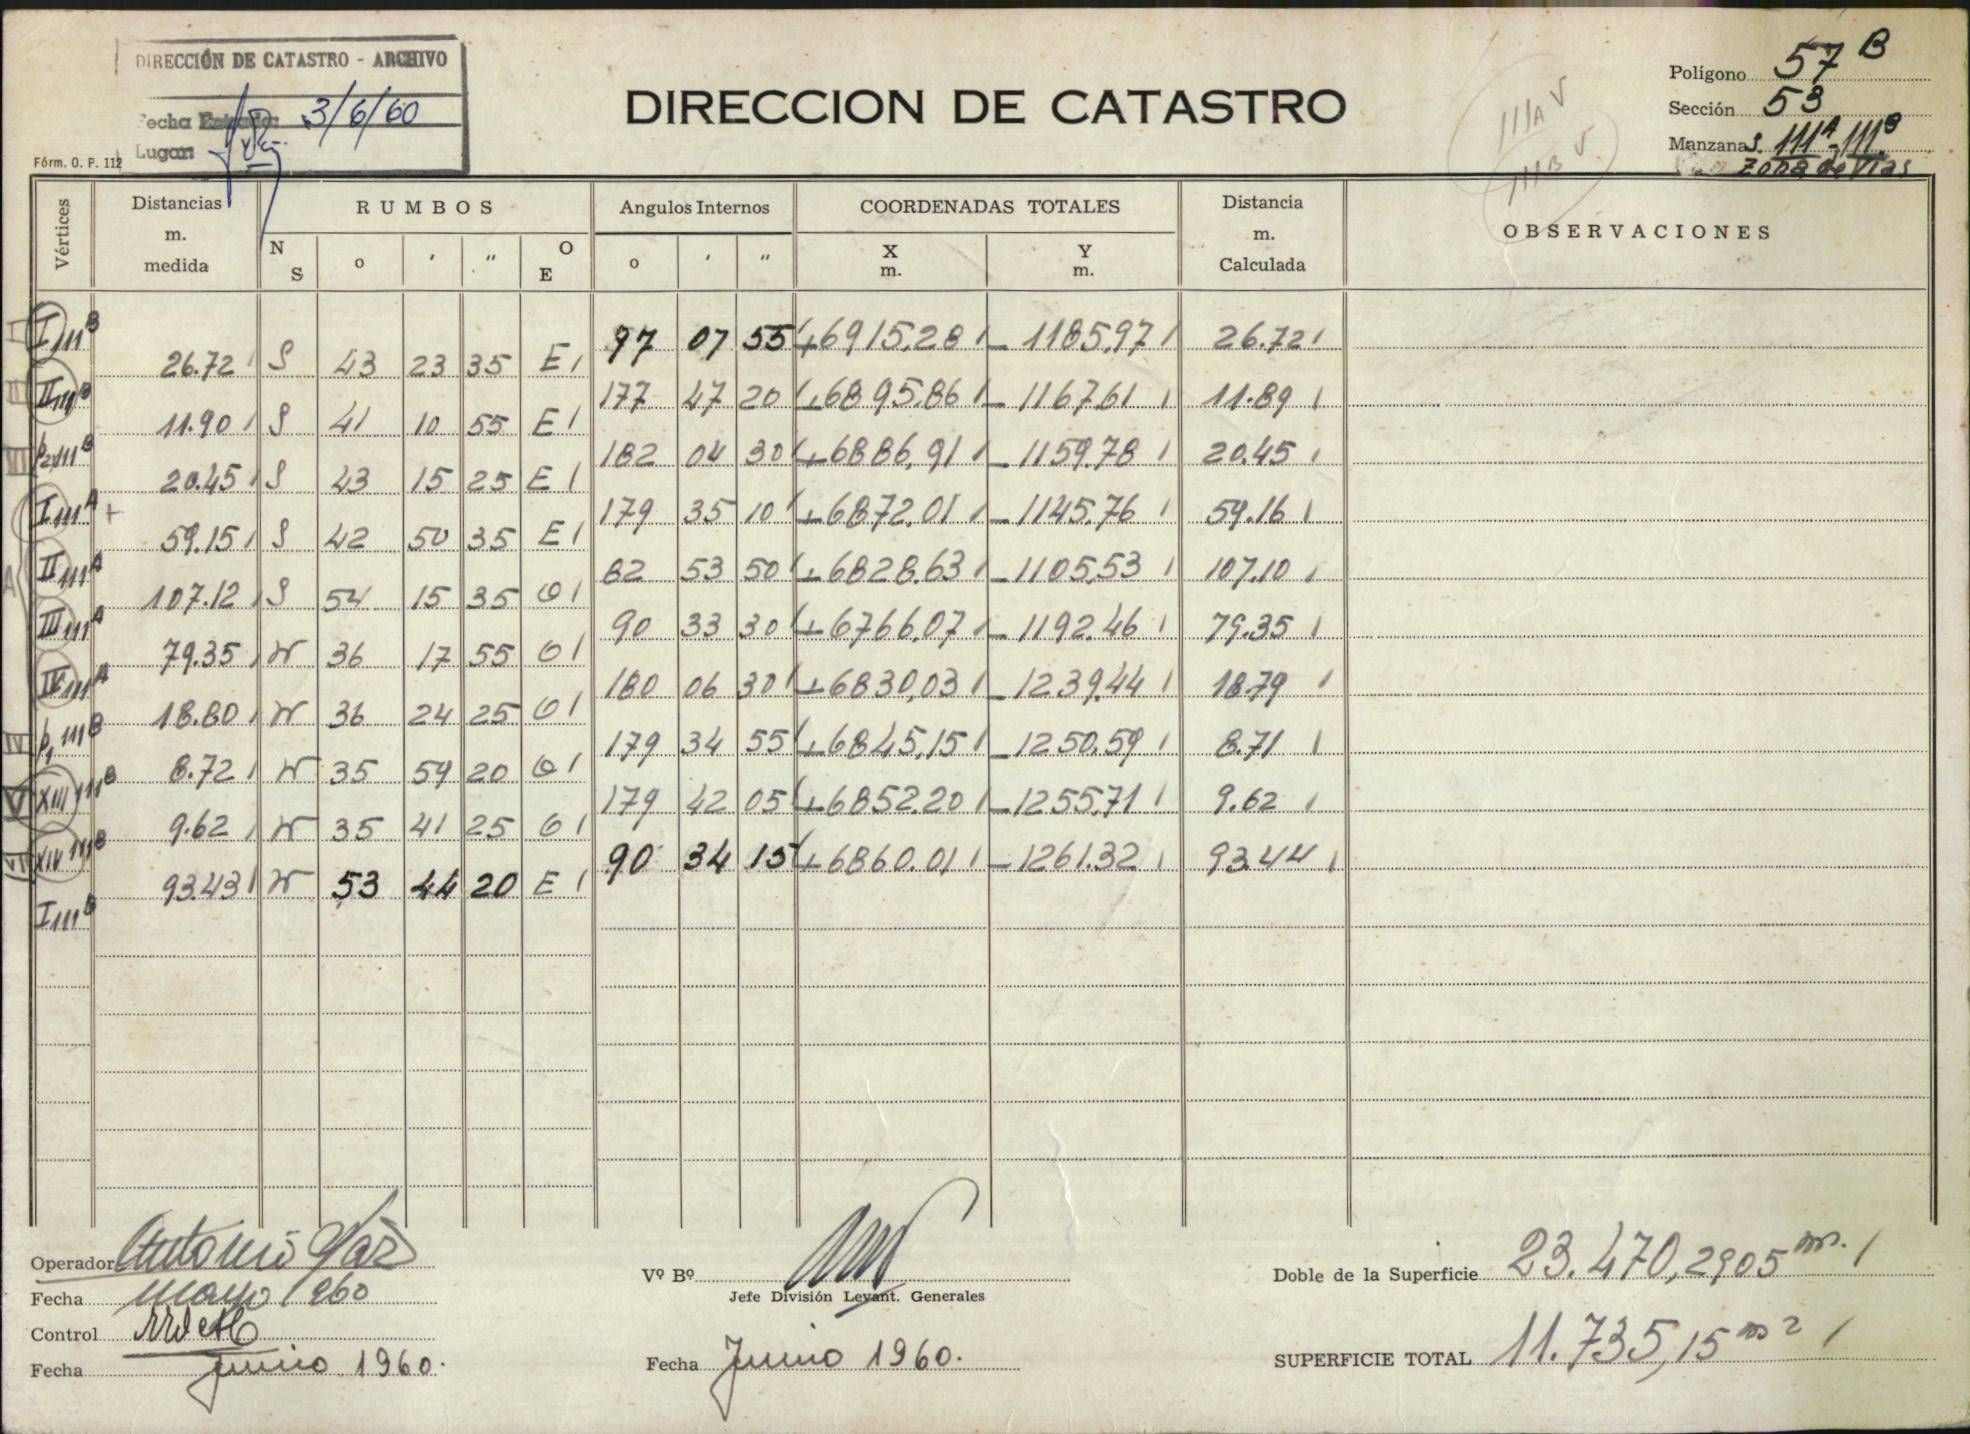 DIRECCIÓN DE CATASTRO - ARCHIVO
Fecha Entrada: 3/6/60
Lugar:
Fórm. O. P. 112
DIRECCION DE CATASTRO
IIIA V
IIIB V
Polígono 57 B
Sección 53
Manzana s. 111A - 111B
Zona de Vias
Vértices
Distancias m. medida
RUMBOS
N S o ' " O E
Angulos Internos
o ' "
COORDENADAS TOTALES
X m. Y m.
Distancia m. Calculada
OBSERVACIONES
I 111B 97 07 55 +6915.28 -1185,97 26.72
26.72 S 43 23 35 E
II 111B 177 47 20 +6895.86 -1167.61 11.89
11.90 S 41 10 55 E
P2 111B 182 04 30 +6886,91 -1159.78 20.45
20.45 S 43 15 25 E
I 111A + 179 35 10 +6872.01 -1145.76 59.16
59.15 S 42 50 35 E
II 111A 82 53 50 +6828.63 -1105,53 107.10
107.12 S 54 15 35 O
III 111A 90 33 30 +6766,07 -1192.46 79.35
79.35 N 36 17 55 O
IV 111A 180 06 30 +6830,03 -1239,44 18.79
18.80 N 36 24 25 O
P1 111B 179 34 55 +6845,15 -1250,59 8.71
8.72 N 35 59 20 O
XIII 111B 179 42 05 +6852.20 -1255,71 9.62
9.62 N 35 41 25 O
XIV 111B 90 34 15 +6860.01 -1261.32 93.44
93.43 N 53 44 20 E
I 111B
Operador Antonio
Fecha mayo 1960
Control
Fecha Junio 1960.
Vº Bº
Jefe División Levant. Generales
Fecha Junio 1960.
Doble de la Superficie 23.470,2905 m.
SUPERFICIE TOTAL 11.735,15 m2